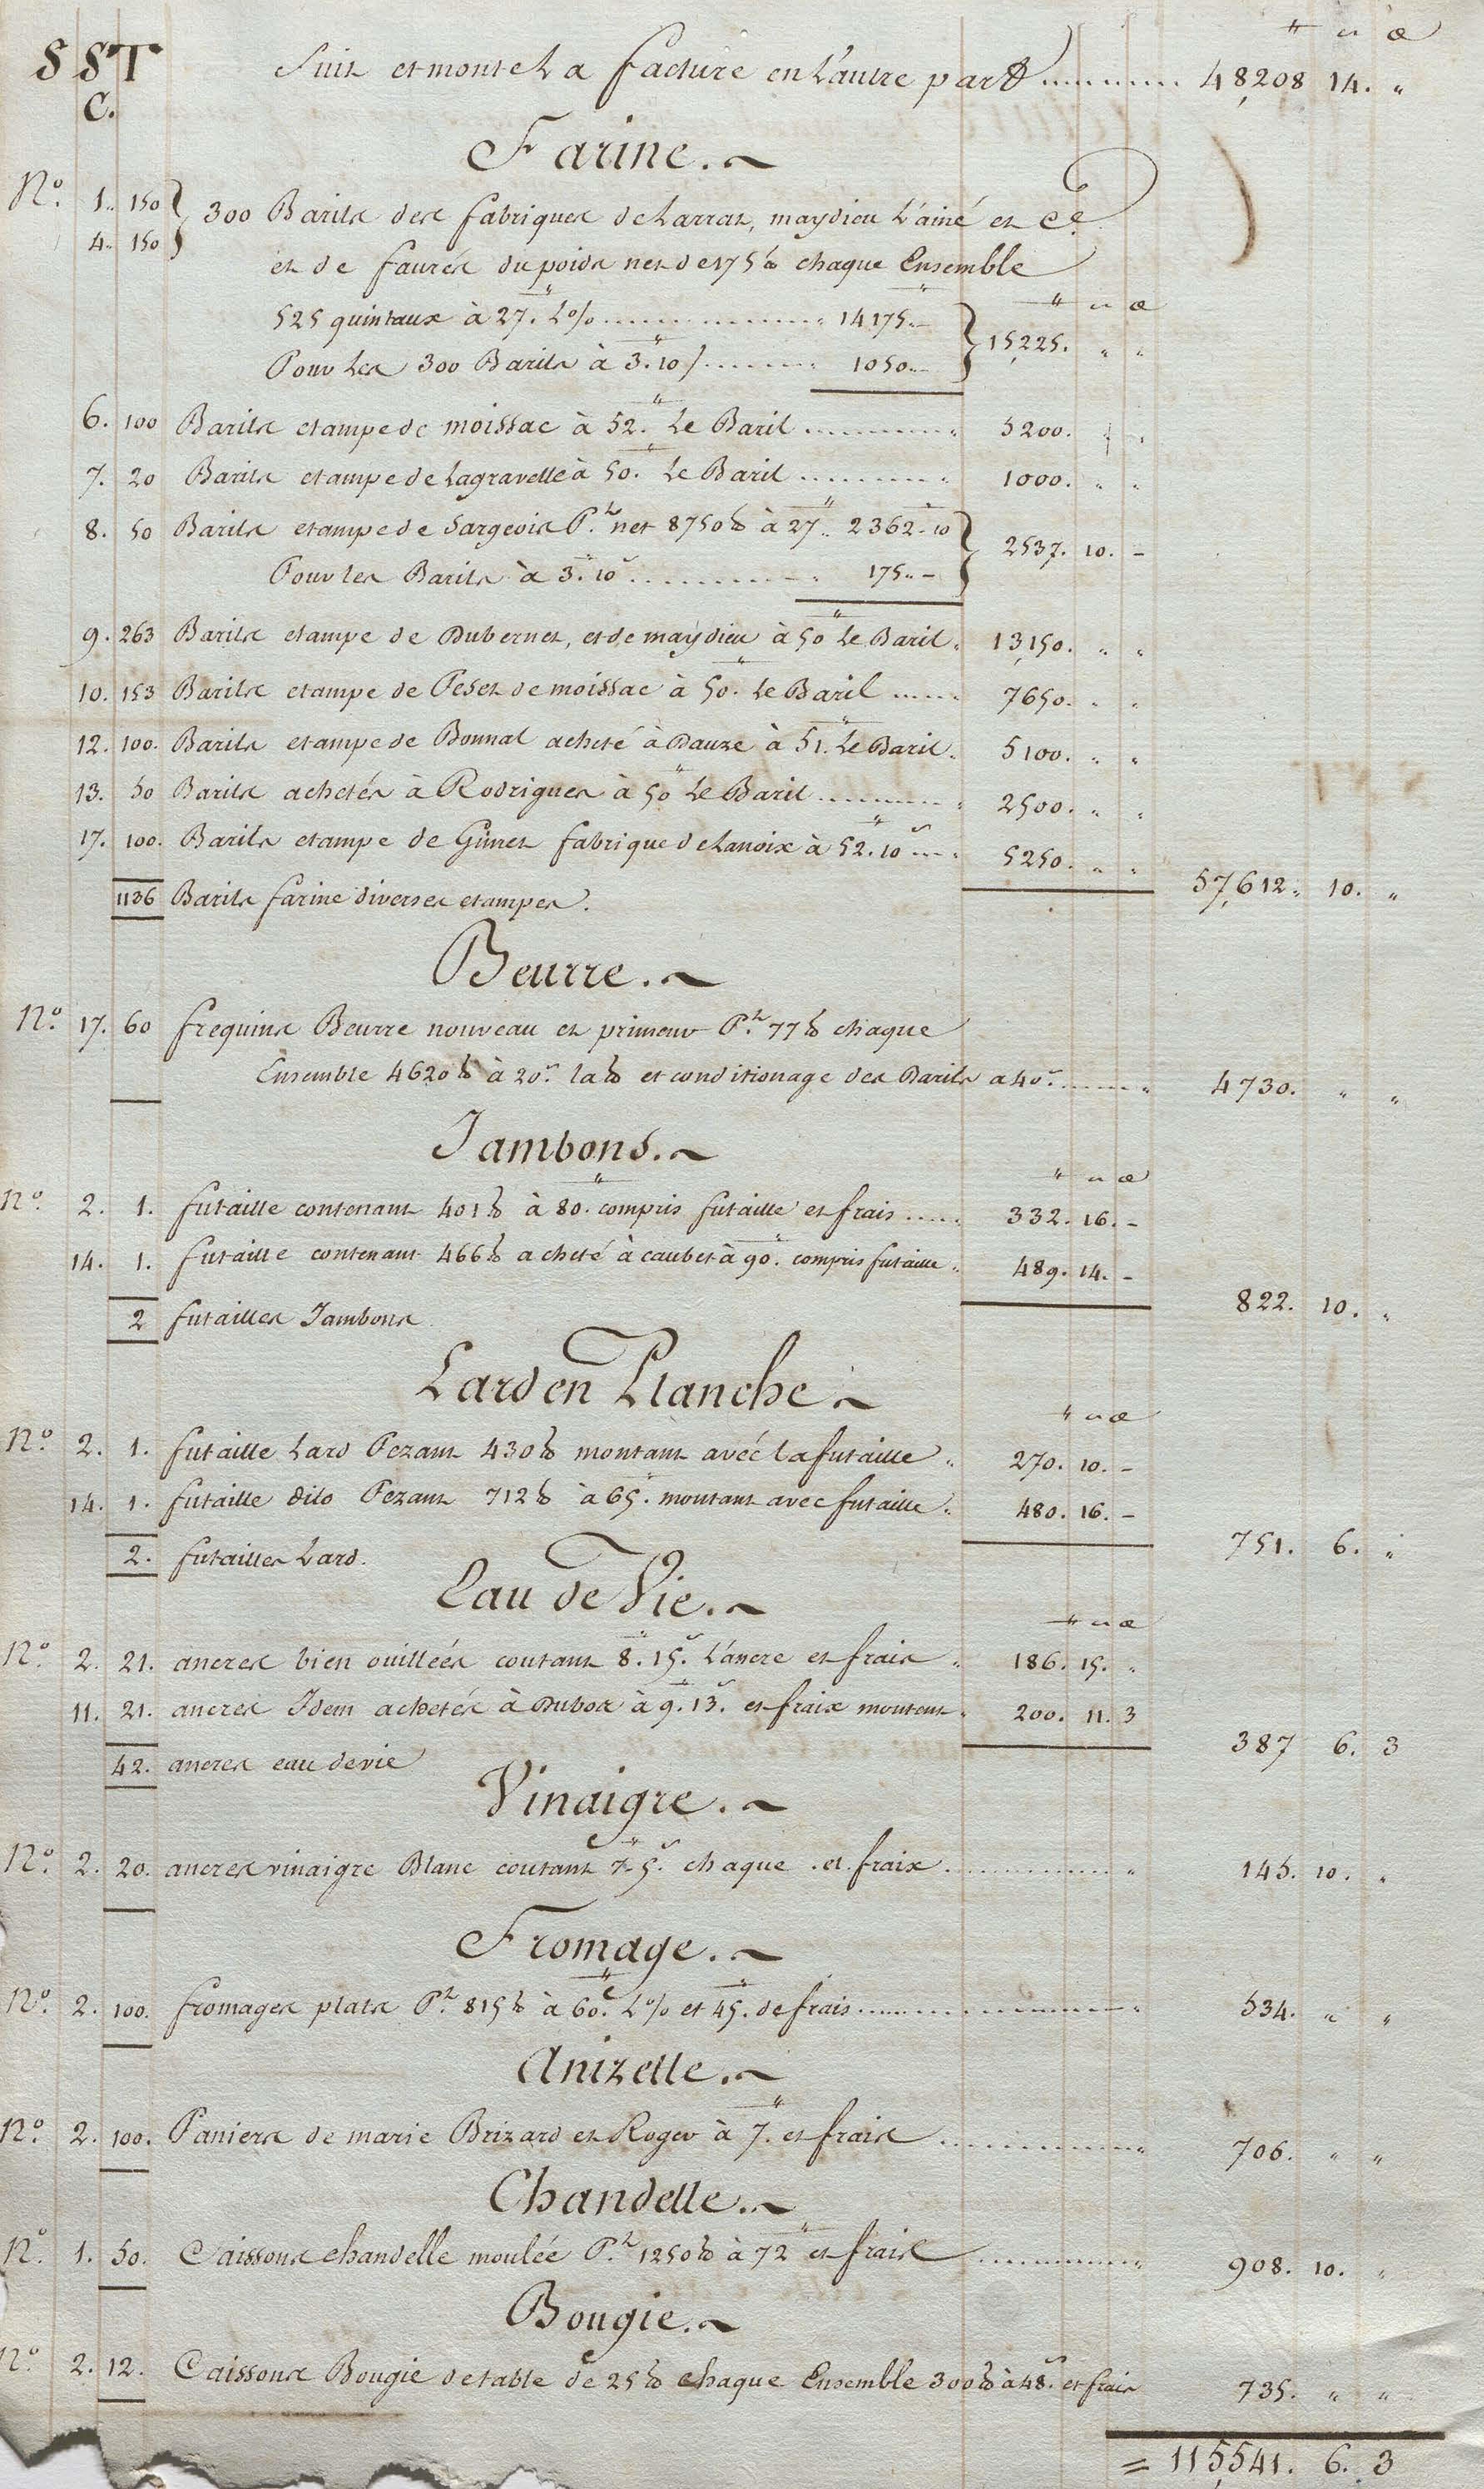 S S T
C.
₶ s d
Suit et monte La facture en L'autre part ........ 48,208 14. "
Farine. ~
N.º 1. 150 } 300 Barils des fabriques de Larrat, maydieu L'ainé et Cᵉ
4. 150
et de faurés du poids net de 175 ℔ chaque Ensemble
₶ s d
525 quintaux à 27.₶ L% ........ 14175.. — } 15,225. " "
Pour Les 300 Barils à 3.₶ 10 s ........ 1050.. —
6. 100 Barils etampe de moissac à 52.₶ Le Baril ........ 5200. " "
7. 20 Barils etampe de Lagravelle à 50.₶ Le Baril ........ 1000. " "
8. 50 Barils etampe de Sargeois P.ᵗ net 8750 ℔ à 27₶ .. 2362 - 10 } 2537. 10. —
Pour les Barils à 3.₶ 10 s ........ 175.. —
9. 263 Barils etampe de Dubernet, et de maydieu à 50₶ Le Baril . 13,150. " "
10. 153 Barils etampe de Peset de moissac à 50.₶ Le Baril ...... 7650. " "
12. 100. Barils etampe de Bonnal acheté à Dauze à 51.₶ Le Baril . 5100. " "
13. 50 Barils achetés à Rodrigues à 50₶ Le Baril ........ 2500. " "
17. 100. Barils etampe de Gimet fabrique de Lanoix à 52.₶ 10 s .... 5250. " "
57,612.. 10. "
1136 Barils farine diverses etampes.
Beurre. ~
N.º 17. 60 frequins Beurre nouveau et primeur P.ᵗ 77 ℔ chaque
Ensemble 4620 ℔ à 20.s la ℔ et conditionage des Barils a 40.s ........ 4730. " "
Jambons. ~
₶ s d
N.º 2. 1. futaille contenant 401 ℔ à 80.₶ compris futaille et frais ..... 332. 16. —
14. 1. futaille contenant 466 ℔ acheté à caubet à 90.₶ compris futaille . 489. 14. —
822. 10. "
2 futailles Jambons
Lard en Planche ~
₶ s d
N.º 2. 1. futaille Lard Pezant 430 ℔ montant avec La futaille . 270. 10. —
14. 1. futaille dito Pezant 712 ℔ à 65.₶ montant avec futaille . 480. 16. —
751. 6. "
2. futailles Lard.
Eau de Vie. ~
₶ s d
N.º 2. 21. ancres bien ouillées coutant 8.₶ 15.s L'ancre et frais . 186. 15. "
11. 21. ancres Idem achetés à Dubos à 9.₶ 13.s et fraix montant . 200. 11. 3
387 6. 3
42. ancres eau de vie
Vinaigre. ~
N.º 2. 20. ancres vinaigre Blanc coutant 7₶ 5.s chaque . et . fraix ........ 145. 10. "
Fromage. ~
N.º 2. 100. fromages plats P.ᵗ 815 ℔ à 60.₶ L% et 45.₶ de frais ........ 534. " "
Anizette. ~
N.º 2. 100. Paniers de marie Brizard et Roger à 7.₶ et frais ........ 706. " "
Chandelle. ~
N.º 1. 50. Caissons chandelle moulée P.ᵗ 1250 ℔ à 72₶ et frais ........ 908. 10. "
Bougie. ~
N.º 2. 12. Caissons Bougie de table de 25 ℔ chaque Ensemble 300 ℔ à 48.s et frais 735. " "
= 115,541. 6. 3